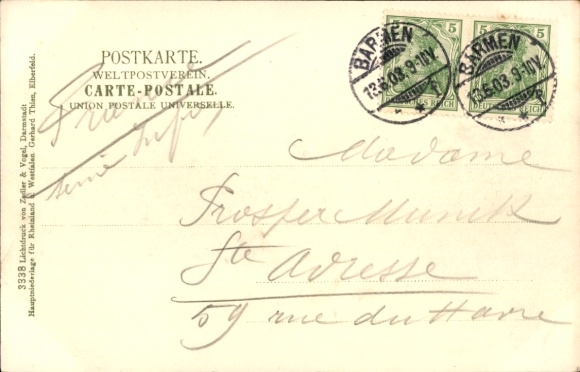 POSTKARTE.
WELTPOSTVEREIN.
CARTE-POSTALE.
UNION POSTALE UNIVERSELLE.
5
5
BARMEN
13.5.03. 9-10V.
BARMEN
13.5.03. 9-10V.
DEUTSCHES REICH
DEUTSCHES REICH
Madame
Prosper Munick
Ste Adresse
59 rue du Havre
3338 Lichtdruck von Zedler & Vogel, Darmstadt
Hauptniederlage für Rheinland u. Westfalen Gerhard Thien, Elberfeld.